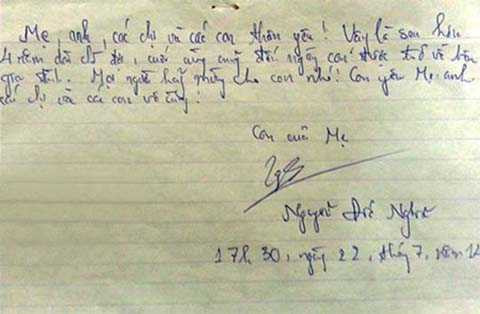 Mẹ, anh, các chị và các con thân yêu! Vậy là sau hơn
4 năm dài chờ đợi, cuối cùng cũng đến ngày con được trở về bên
gia đình. Mọi người hãy mừng cho con nhé! Con yêu Mẹ, anh
các chị và các con vô cùng!
Con của Mẹ
Nguyễn Đức Nghĩa
17h 30, ngày 22, tháng 7, năm 14